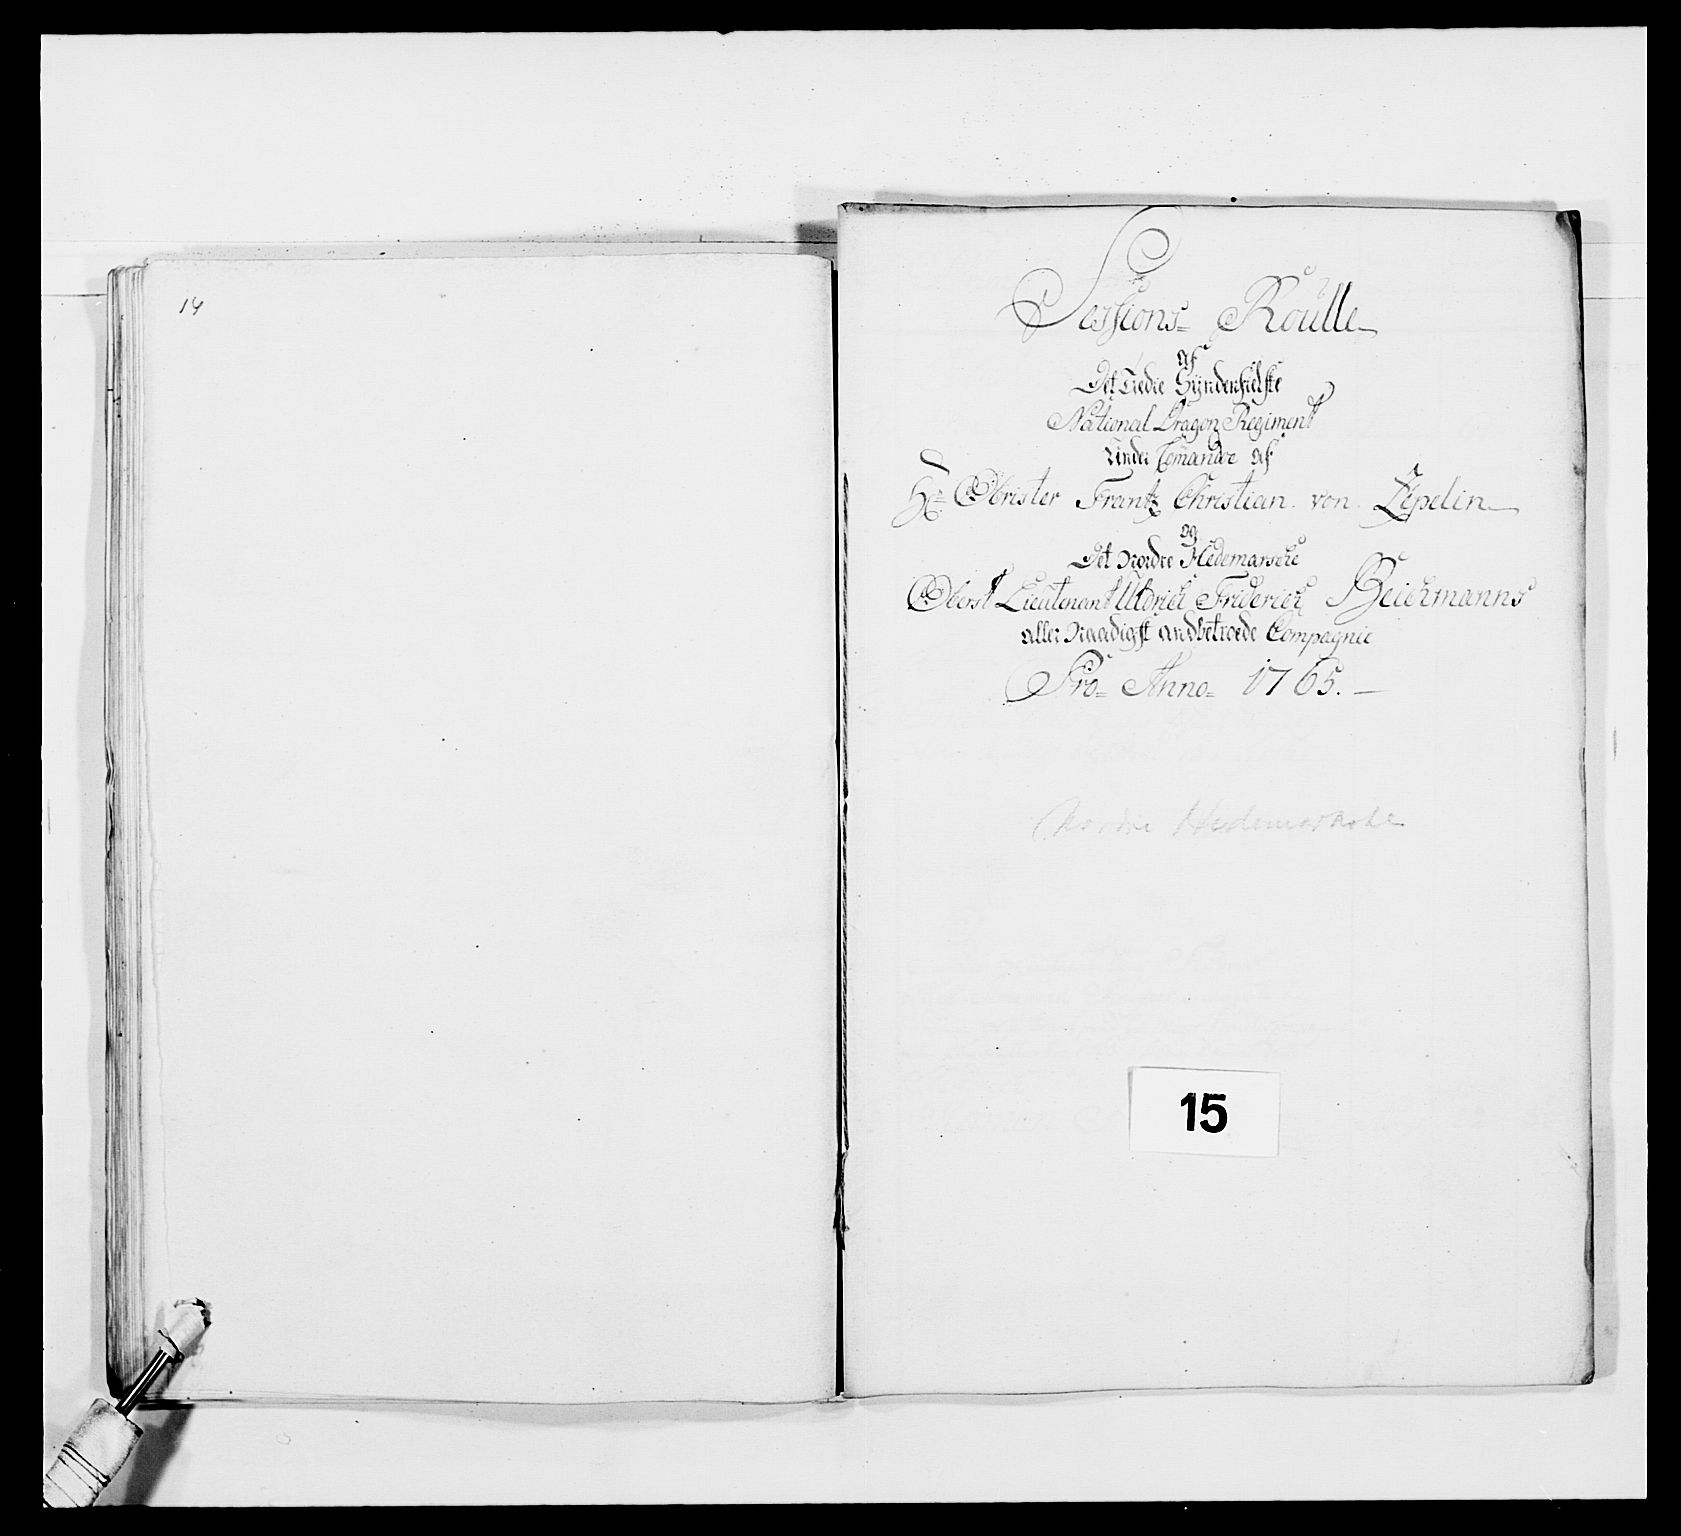 14
Sessions- Roulle
af
Det Tredie Syndenfielske
National Dragon Regiment
Under Comando af
Hr Obrister Frantz Christian von Zepelin
og
Det Nordre Hedemarkske
Oberst Lieutenant Uldrich Friderich Beichmanns
aller Naadigst andbetroede Compagnie
Pro- Anno- 1765.
Nordre Hedemarkske
15